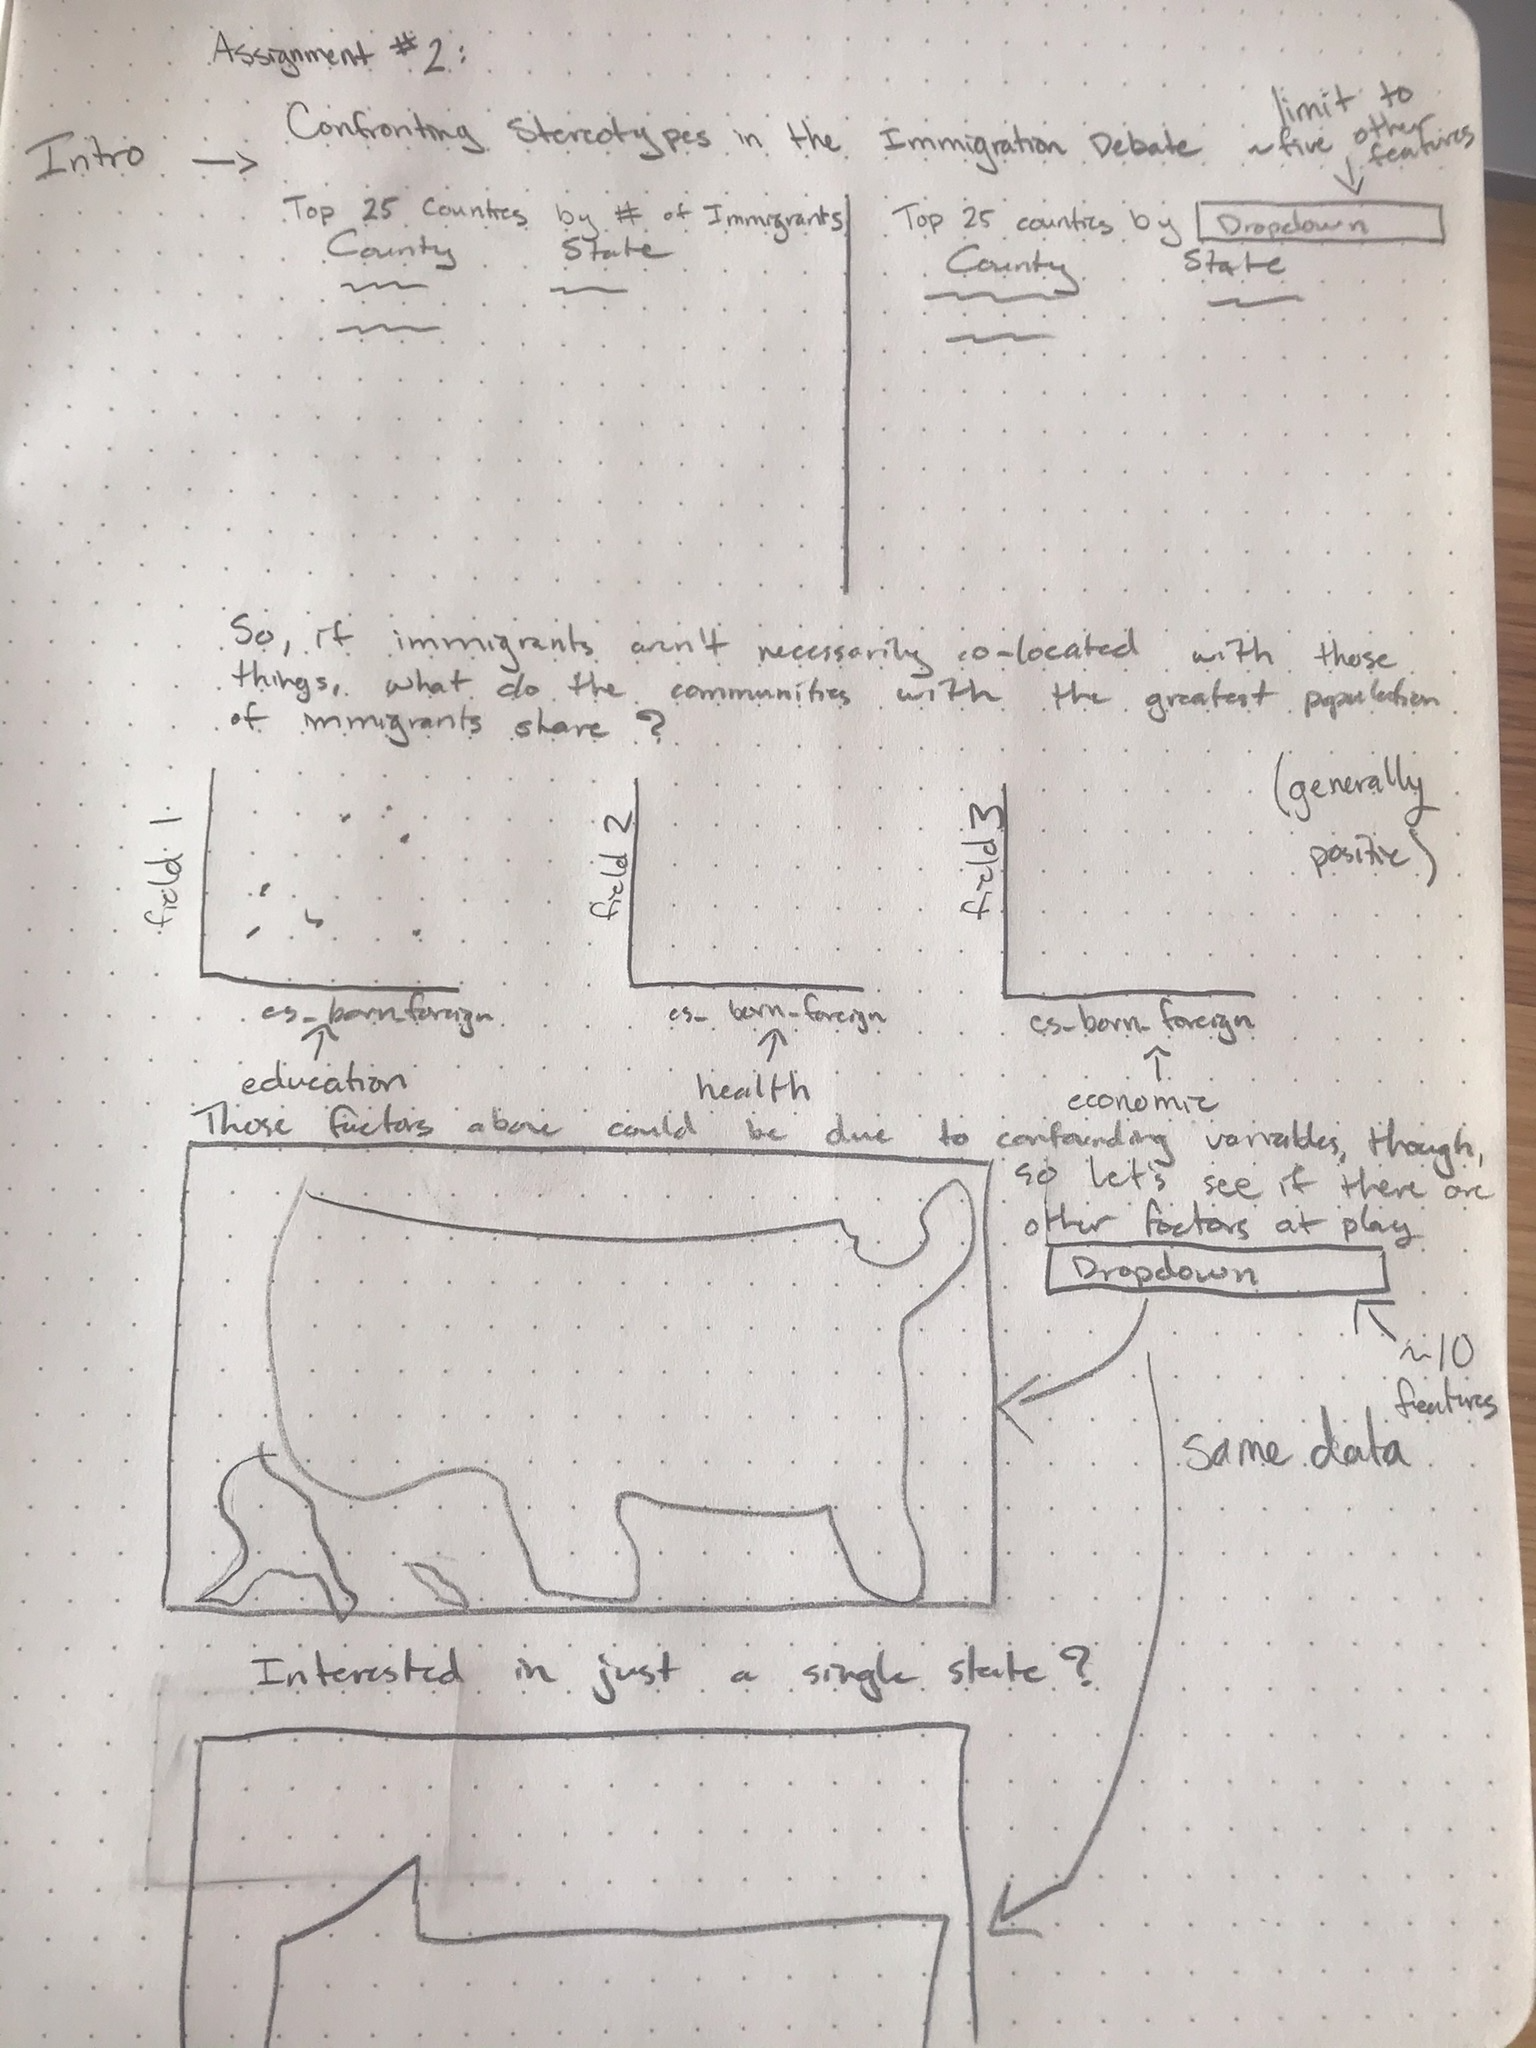 Assignment #2:
Intro → Confronting Stereotypes in the Immigration Debate
limit to
~five other
features
Top 25 Counties by # of Immigrants
County State
Top 25 counties by Dropdown
County State
So, if immigrants aren't necessarily co-located with those
things, what do the communities with the greatest population
of immigrants share?
(generally
positive)
field 1
cs_born_foreign
education
field 2
cs_born_foreign
health
field 3
cs_born_foreign
economic
Those factors above could be due to confounding variables, though,
so let's see if there are
other factors at play
Dropdown
~10
features
same data
Interested in just a single state?